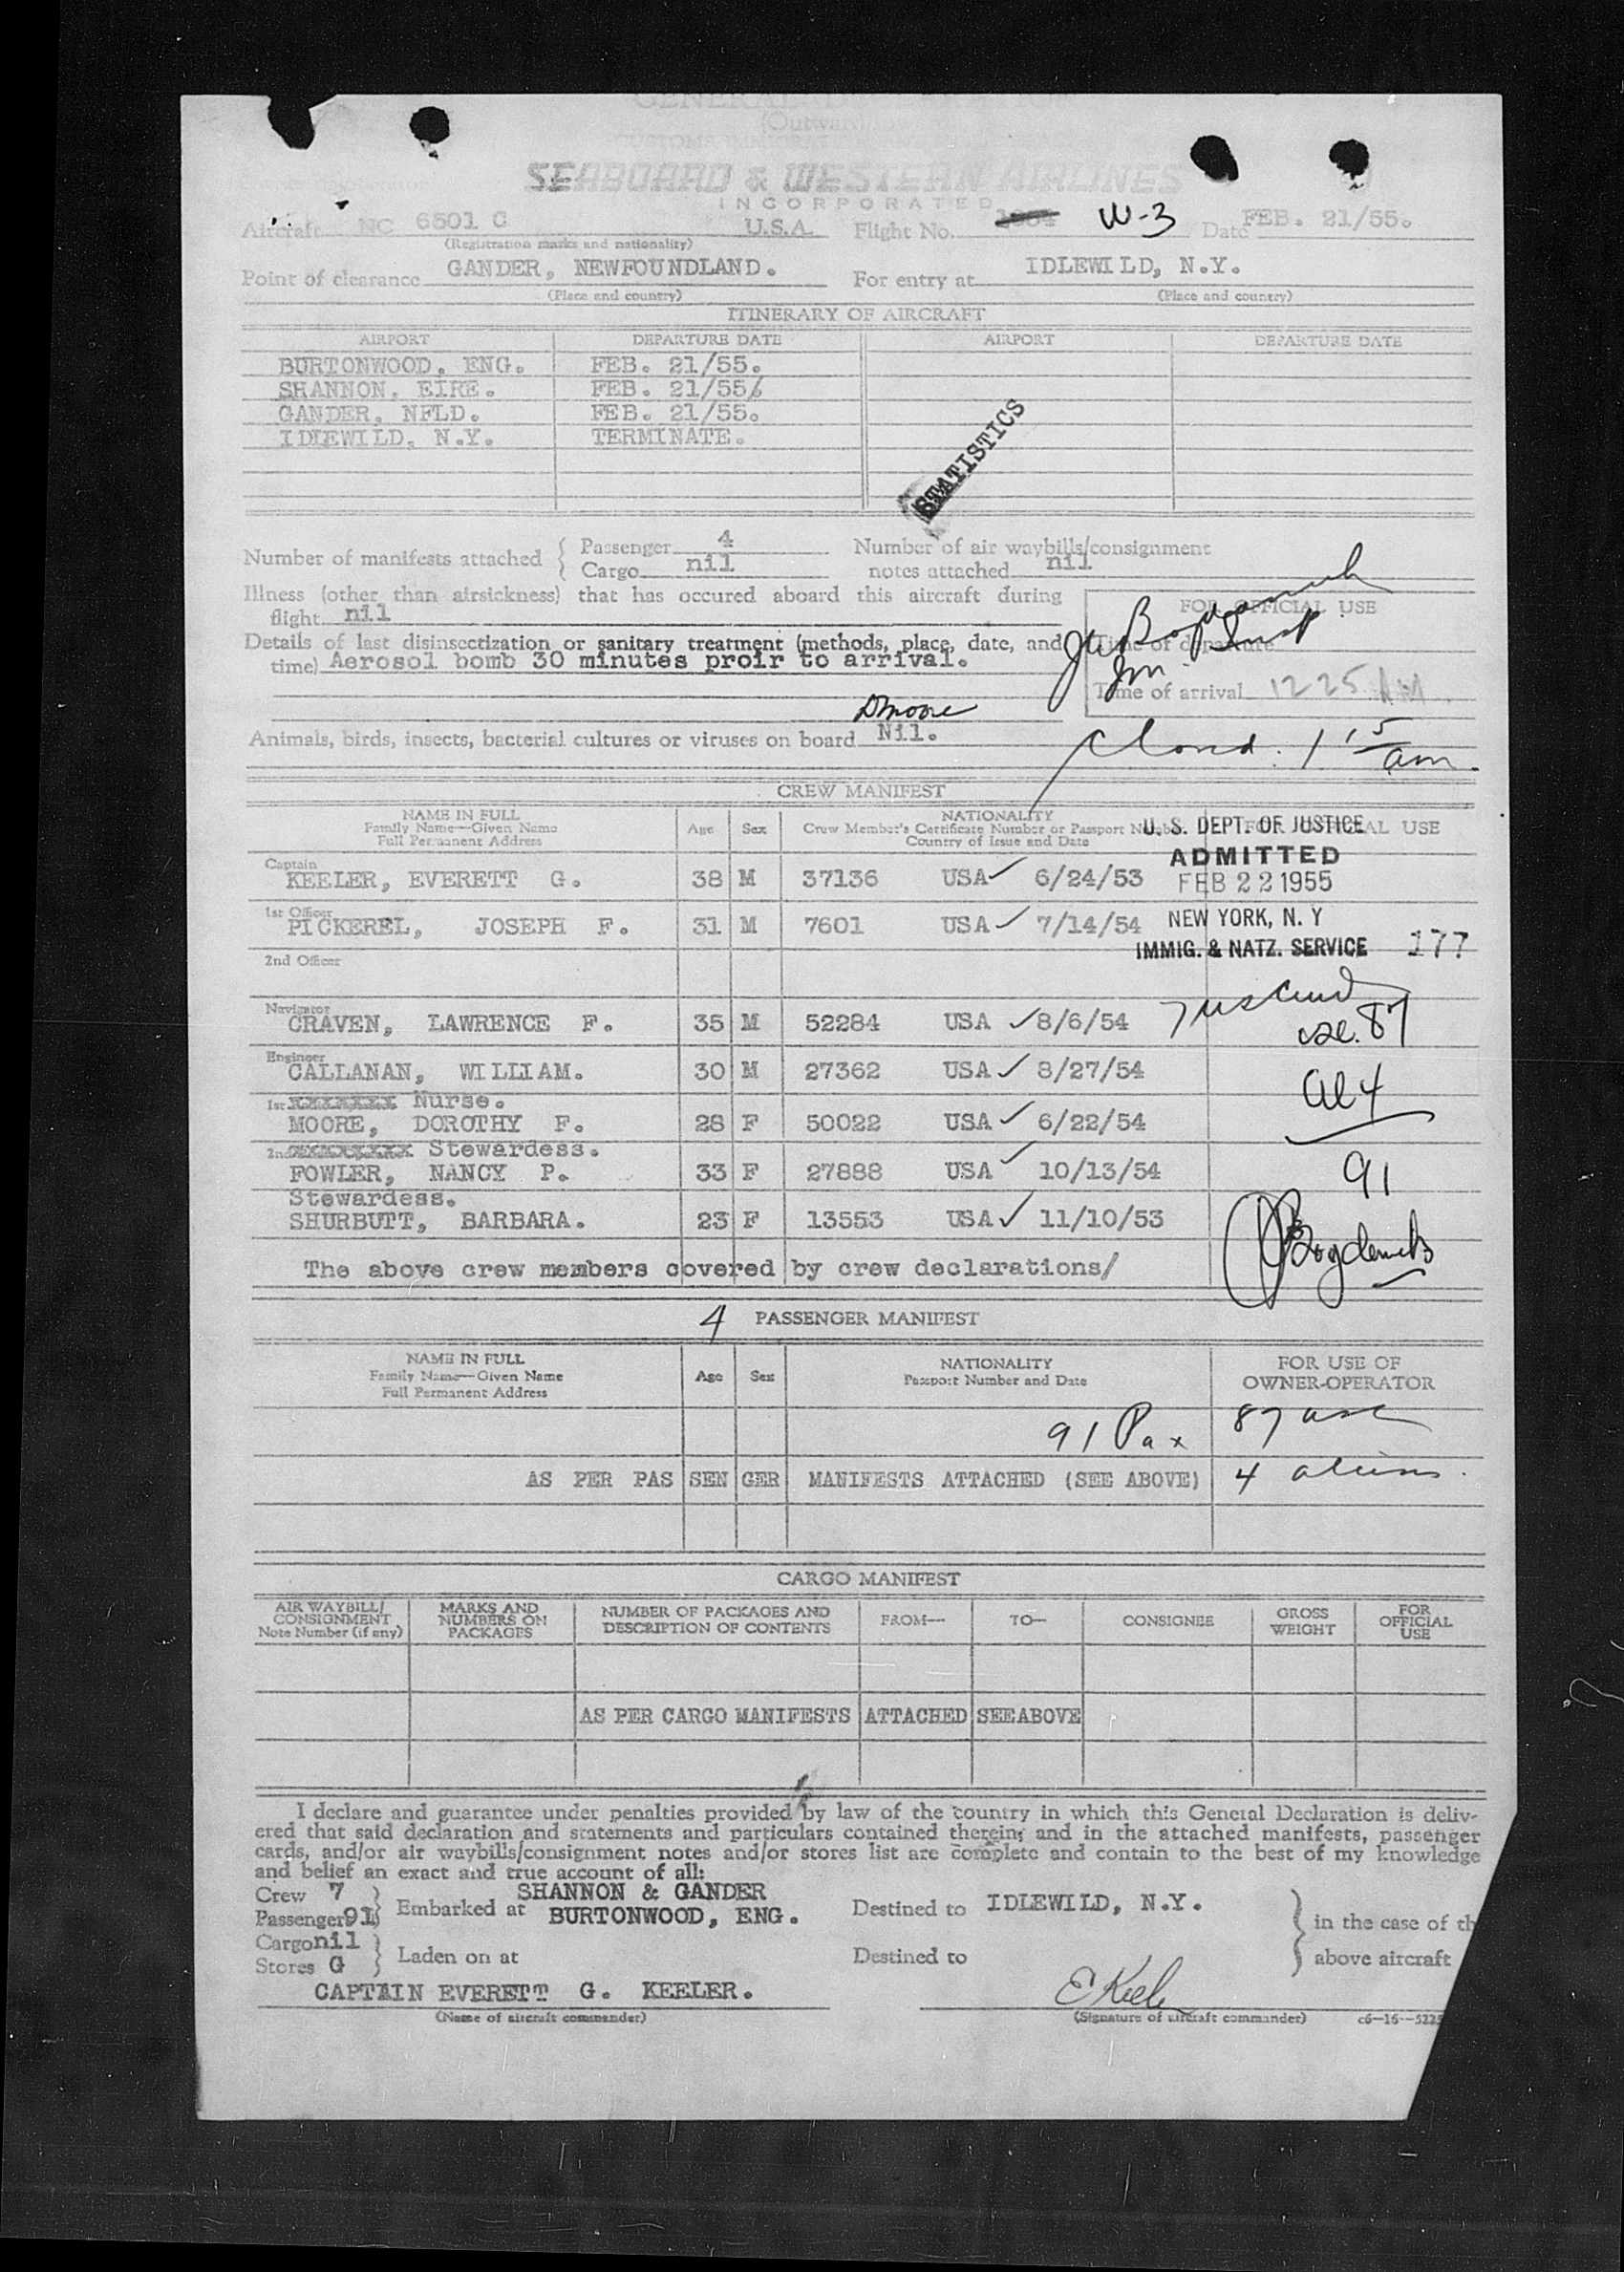 GENERAL DECLARATION
(Outward)
SEABOARD & WESTERN AIRLINES
INCORPORATED
Aircraft NC 6501 C U.S.A. Flight No. W-3 Date FEB. 21/55.
(Registration marks and nationality)
Point of clearance GANDER, NEWFOUNDLAND. For entry at IDLEWILD, N.Y.
(Place and country) (Place and country)
ITINERARY OF AIRCRAFT
AIRPORT DEPARTURE DATE AIRPORT DEPARTURE DATE
BURTONWOOD, ENG. FEB. 21/55.
SHANNON, EIRE. FEB. 21/55.
GANDER, NFLD. FEB. 21/55.
IDLEWILD, N.Y. TERMINATE.
STATISTICS
Number of manifests attached { Passenger 4 Number of air waybills/consignment
Cargo nil notes attached nil
Illness (other than airsickness) that has occured aboard this aircraft during
flight nil
FOR OFFICIAL USE
Details of last disinsectization or sanitary treatment (methods, place, date, and
time) Aerosol bomb 30 minutes proir to arrival.
Time of departure
Time of arrival 1225 AM
DMoore
Animals, birds, insects, bacterial cultures or viruses on board Nil.
Closed: 1 15 am.
CREW MANIFEST
NAME IN FULL
Family Name—Given Name
Full Permanent Address
Age Sex
NATIONALITY
Crew Member's Certificate Number or Passport Number
Country of Issue and Date
FOR OFFICIAL USE
U. S. DEPT. OF JUSTICE
ADMITTED
FEB 22 1955
NEW YORK, N. Y
IMMIG. & NATZ. SERVICE 177
Captain
KEELER, EVERETT G. 38 M 37136 USA ✓ 6/24/53
1st Officer
PICKEREL, JOSEPH F. 31 M 7601 USA ✓ 7/14/54
2nd Officer
Navigator
CRAVEN, LAWRENCE F. 35 M 52284 USA ✓ 8/6/54
87
Engineer
CALLANAN, WILLIAM. 30 M 27362 USA ✓ 8/27/54
al 4
1st Nurse.
MOORE, DOROTHY F. 28 F 50022 USA ✓ 6/22/54
2nd Stewardess.
FOWLER, NANCY P. 33 F 27888 USA ✓ 10/13/54
91
Stewardess.
SHURBUTT, BARBARA. 23 F 13553 USA ✓ 11/10/53
The above crew members covered by crew declarations/
4 PASSENGER MANIFEST
NAME IN FULL
Family Name—Given Name
Full Permanent Address
Age Sex
NATIONALITY
Passport Number and Date
FOR USE OF
OWNER-OPERATOR
91 Pax 87 usc
AS PER PASSENGER MANIFESTS ATTACHED (SEE ABOVE) 4 aliens.
CARGO MANIFEST
AIR WAYBILL/
CONSIGNMENT
Note Number (if any)
MARKS AND
NUMBERS ON
PACKAGES
NUMBER OF PACKAGES AND
DESCRIPTION OF CONTENTS
FROM— TO— CONSIGNEE
GROSS
WEIGHT
FOR
OFFICIAL
USE
AS PER CARGO MANIFESTS ATTACHED SEE ABOVE
I declare and guarantee under penalties provided by law of the country in which this General Declaration is deliv-
ered that said declaration and statements and particulars contained therein, and in the attached manifests, passenger
cards, and/or air waybills/consignment notes and/or stores list are complete and contain to the best of my knowledge
and belief an exact and true account of all:
Crew 7 SHANNON & GANDER
Passenger 91 } Embarked at BURTONWOOD, ENG. Destined to IDLEWILD, N.Y. } in the case of th
Cargo nil
Stores G } Laden on at Destined to above aircraft
CAPTAIN EVERETT G. KEELER. E Keeler
(Name of aircraft commander) (Signature of aircraft commander) c6—16—5225